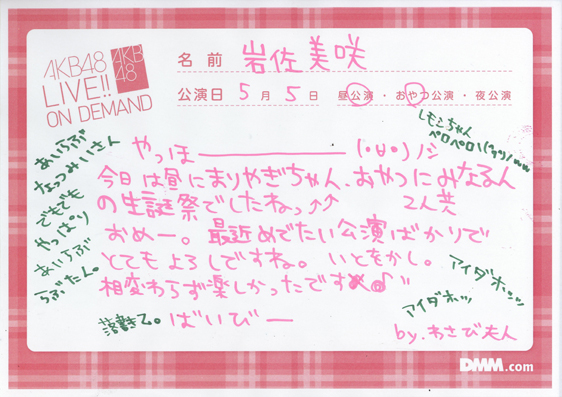 AKB48
LIVE!!
ON DEMAND
AKB
48
名前 岩佐美咲
公演日 5月5日 昼公演・おやつ公演・夜公演
レモンちゃん
ペロペロ
あいらぶ
なっつみぃさん
でもでも
やっぱり
あいらぶ
らぶたん。
やっほ――――― (・∀・)ノシ
今日は昼にまりやぎちゃん、おやつにみなるん
の生誕祭でしたねっ↑↑ 2人共
おめー。最近めでたい公演ばかりで
とてもよろしですね。いとをかし。
相変わらず楽しかったです
アイダホッ
アイダホッ
落書きて。ばいびー
by.わさび夫人
DMM.com